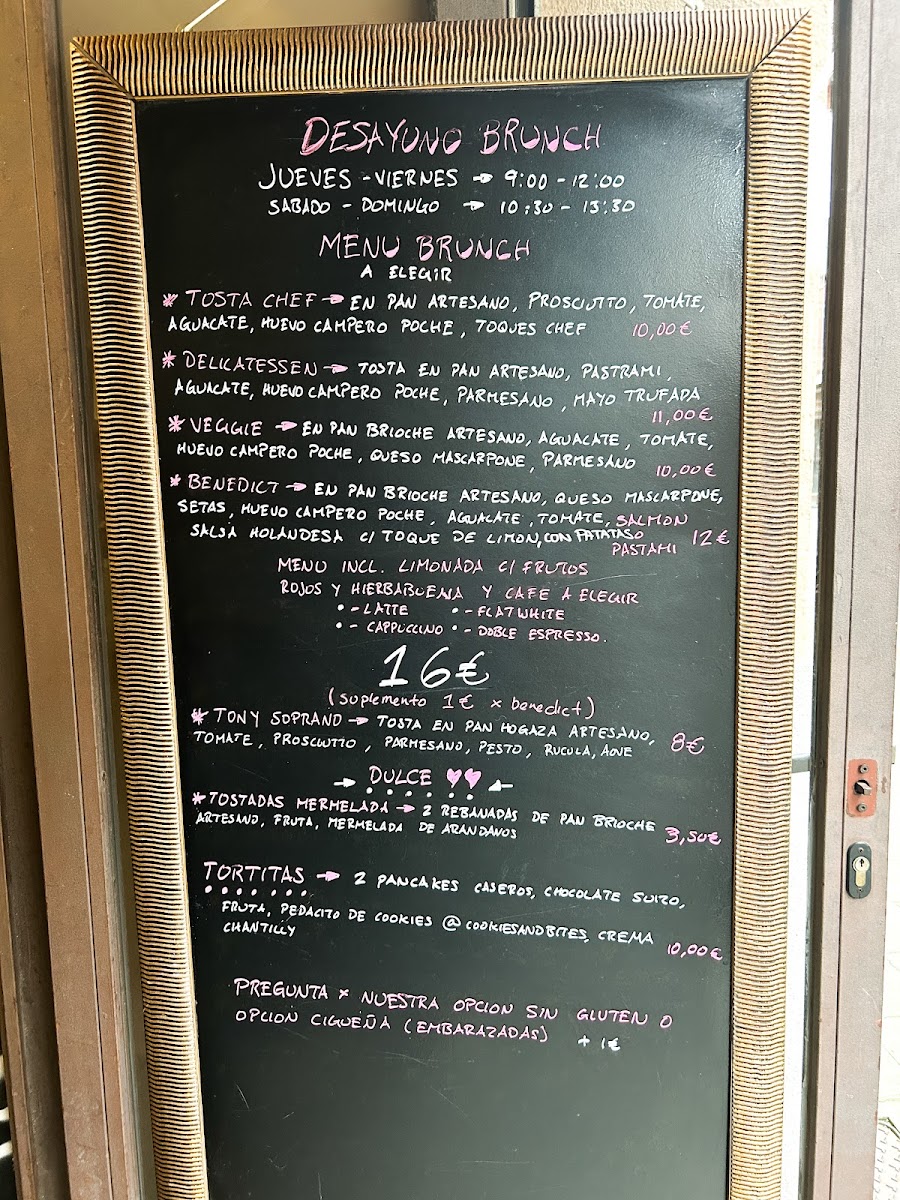 DESAYUNO BRUNCH
JUEVES - VIERNES → 9:00 - 12:00
SABADO - DOMINGO → 10:30 - 13:30
MENU BRUNCH
A ELEGIR
* TOSTA CHEF → EN PAN ARTESANO, PROSCIUTTO, TOMATE,
AGUACATE, HUEVO CAMPERO POCHE, TOQUES CHEF 10,00€
* DELICATESSEN → TOSTA EN PAN ARTESANO, PASTRAMI,
AGUACATE, HUEVO CAMPERO POCHE, PARMESANO, MAYO TRUFADA
11,00€
* VEGGIE → EN PAN BRIOCHE ARTESANO, AGUACATE, TOMATE,
HUEVO CAMPERO POCHE, QUESO MASCARPONE, PARMESANO 10,00€
* BENEDICT → EN PAN BRIOCHE ARTESANO, QUESO MASCARPONE,
SETAS, HUEVO CAMPERO POCHE, AGUACATE, TOMATE, SALMON
SALSA HOLANDESA C/ TOQUE DE LIMON, CON PATATAS O 12€
PASTAMI
MENU INCL. LIMONADA C/ FRUTOS
ROJOS Y HIERBABUENA Y CAFE A ELEGIR
• - LATTE • - FLATWHITE
• - CAPPUCCINO • - DOBLE ESPRESSO.
16€
(suplemento 1€ x benedict)
* TONY SOPRANO → TOSTA EN PAN HOGAZA ARTESANO,
TOMATE, PROSCIUTTO, PARMESANO, PESTO, RUCULA, AOVE 8€
→ DULCE ♥♥ ←
* TOSTADAS MERMELADA → 2 REBANADAS DE PAN BRIOCHE
ARTESANO, FRUTA, MERMELADA DE ARANDANOS 3,50€
TORTITAS → 2 PANCAKES CASEROS, CHOCOLATE SUIZO,
FRUTA, PEDACITO DE COOKIES @COOKIESANDBITES, CREMA
CHANTILLY 10,00€
PREGUNTA x NUESTRA OPCION SIN GLUTEN O
OPCION CIGUEÑA (EMBARAZADAS) + 1€